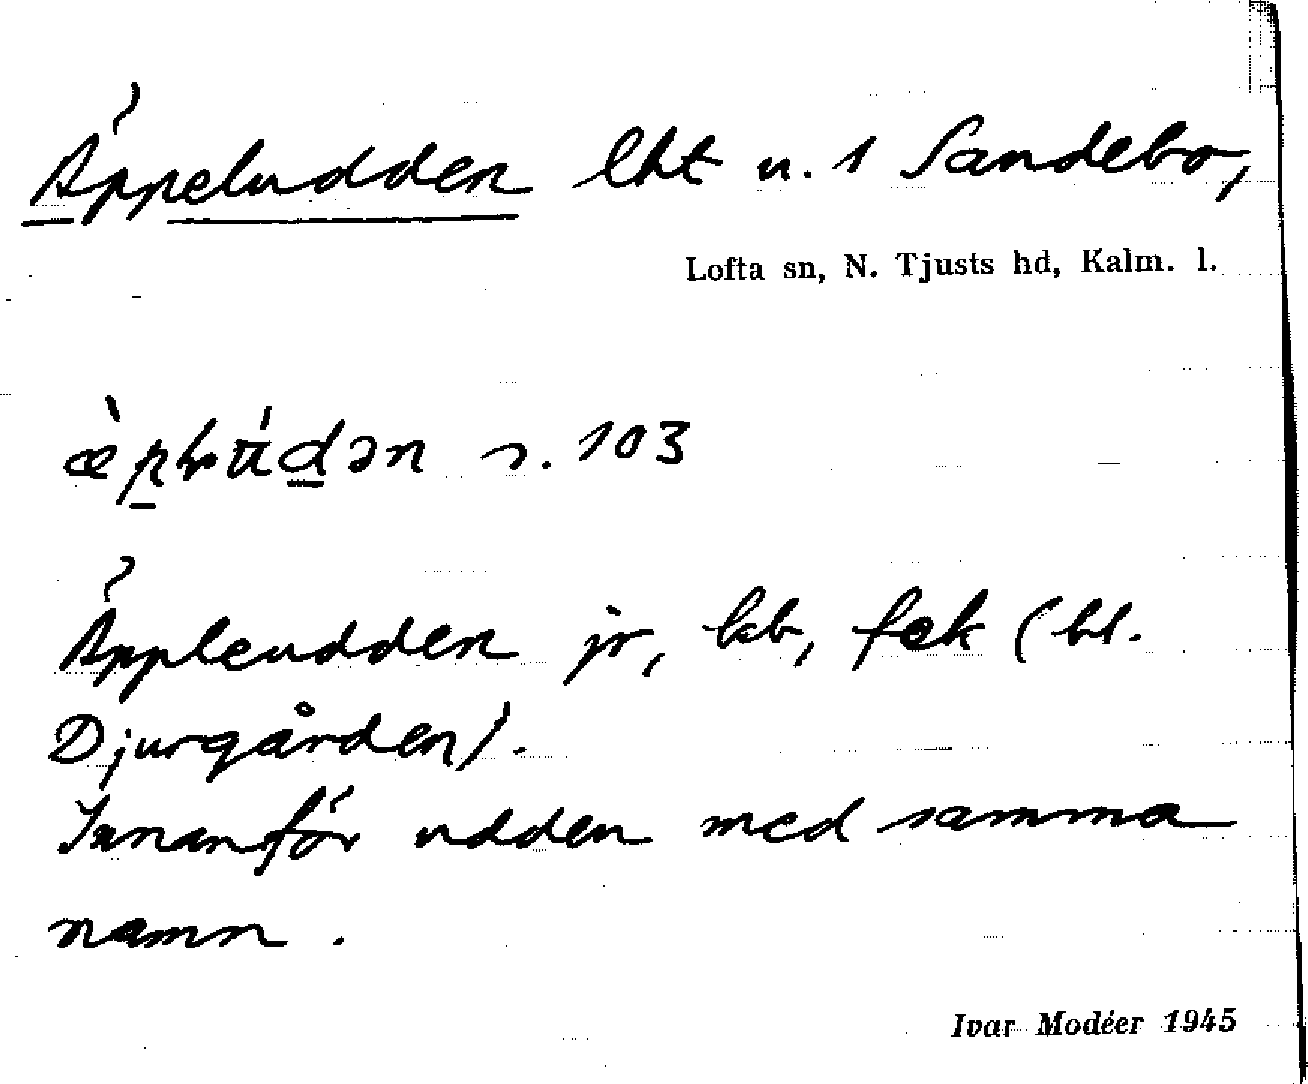 Äppeludden lht u. 1 Sandebo,
Lofta sn, N. Tjusts hd, Kalm. l.
s. 103
Äppleudden jr, kb, fek (bl.
Djurgården).
Innanför udden med samma
namn.
Ivar Modéer 1945